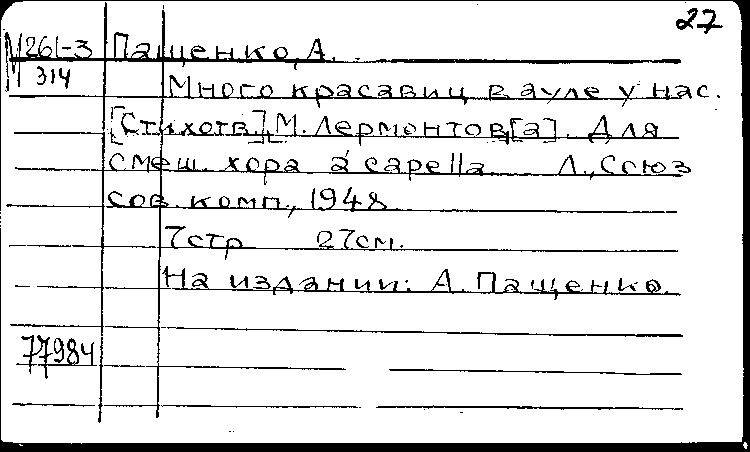 27
М261-3 Пащенко, А.
314
Много красавиц в ауле у нас.
[Стихотв.] М. Лермонтов[а]. Для
смеш. хора a'capella. Л., Союз
сов. комп., 1948
7стр 27см.
На издании: А. Пащенко.
77984